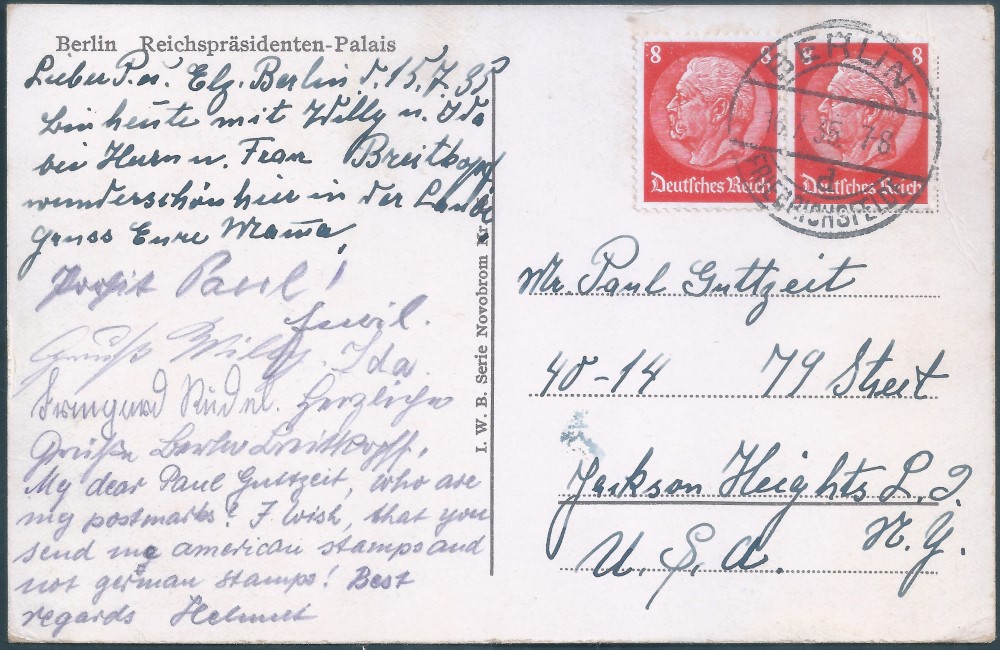 Berlin Reichspräsidenten-Palais
Lieber P. u. Elz. Berlin d. 15.7.35
bin heute mit Willy u. Ida
bei Herrn u. Frau Breitkopf
wunderschön hier in der Laube
gruss Eure Mama,
Prosit Paul!
Gruß Willy. Ida.
Irmgard Rüdel. Herzliche
Grüße Breitkopf,
My dear Paul Guttzeit, who are
my postmarks? I wish, that you
send me american stamps and
not german stamps! Best
regards Helmut
I. W. B. Serie Novobrom Nr.
8
8
Deutsches Reich
Deutsches Reich
BERLIN-
16.7.35. 7-8
d
FRIEDRICHSFELDE
Mr. Paul Guttzeit
40-14 79 Street
Jackson Heights L.I.
N.Y.
U.S.A.